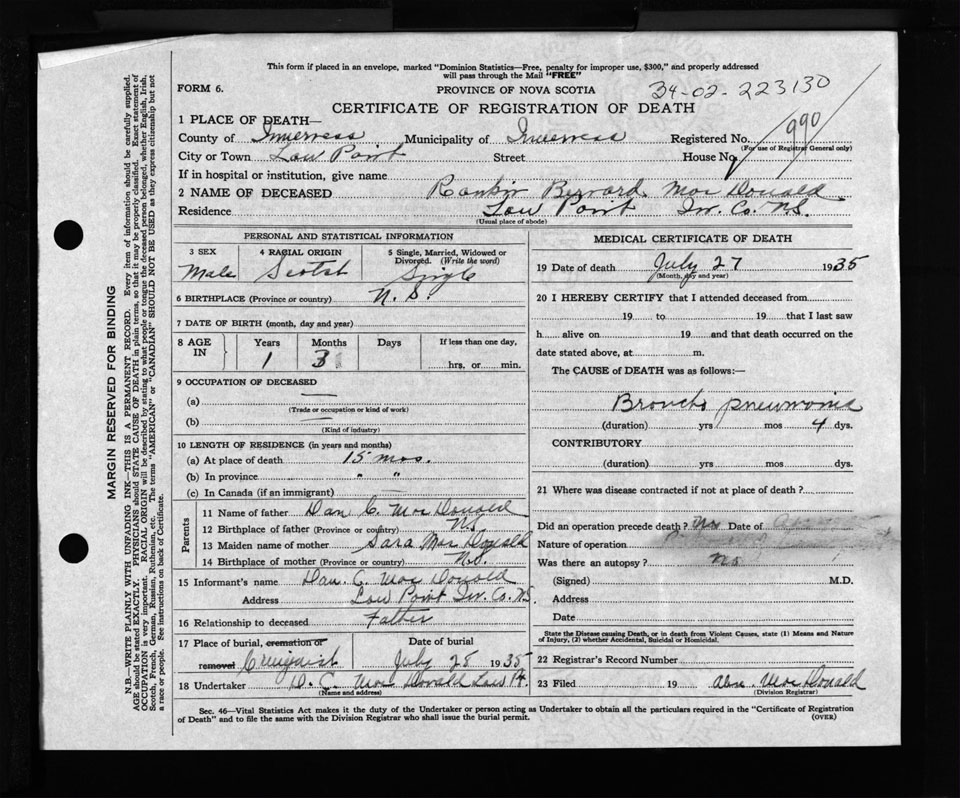 This form if placed in an envelope, marked "Dominion Statistics—Free, penalty for improper use, $300," and properly addressed
will pass through the Mail "FREE"
FORM 6.
PROVINCE OF NOVA SCOTIA
34-02-223130
CERTIFICATE OF REGISTRATION OF DEATH
990
1 PLACE OF DEATH—
County of Inverness Municipality of Inverness Registered No.
(For use of Registrar General only)
City or Town Low Point Street House No.
If in hospital or institution, give name
2 NAME OF DECEASED Rankin Bernard Mac Donald
Residence Low Point Inv. Co. N.S.
(Usual place of abode)
PERSONAL AND STATISTICAL INFORMATION
3 SEX 4 RACIAL ORIGIN 5 Single, Married, Widowed or
Divorced. (Write the word)
Male Scotch Single
6 BIRTHPLACE (Province or country) N. S.
7 DATE OF BIRTH (month, day and year)
8 AGE IN Years Months Days If less than one day,
1 3 hrs. or min.
9 OCCUPATION OF DECEASED
(a) —
(Trade or occupation or kind of work)
(b) —
(Kind of industry)
10 LENGTH OF RESIDENCE (in years and months)
(a) At place of death 15 mos.
(b) In province " "
(c) In Canada (if an immigrant)
Parents
11 Name of father Dan C. Mac Donald
12 Birthplace of father (Province or country) N.S.
13 Maiden name of mother Sara Mac Donald
14 Birthplace of mother (Province or country) N.S.
15 Informant's name Dan. C. Mac Donald
Address Low Point Inv. Co. N.S.
16 Relationship to deceased Father
17 Place of burial, cremation or Date of burial
removal Creignish July 28 1935
18 Undertaker D. C. Mac Donald Low Pt.
(Name and address)
MEDICAL CERTIFICATE OF DEATH
19 Date of death July 27 1935
(Month, day and year)
20 I HEREBY CERTIFY that I attended deceased from
19 to 19 that I last saw
h alive on 19 and that death occurred on the
date stated above, at m.
The CAUSE of DEATH was as follows:—
Broncho pneumonia
(duration) yrs mos 4 dys.
CONTRIBUTORY
(duration) yrs mos dys.
21 Where was disease contracted if not at place of death?
Did an operation precede death? No Date of
Nature of operation
Was there an autopsy? No
(Signed) M.D.
Address
Date
State the Disease causing Death, or in death from Violent Causes, state (1) Means and Nature
of Injury, (2) whether Accidental, Suicidal or Homicidal.
22 Registrar's Record Number
23 Filed 19 Mac Donald
(Division Registrar)
Sec. 46—Vital Statistics Act makes it the duty of the Undertaker or person acting as Undertaker to obtain all the particulars required in the "Certificate of Registration
of Death" and to file the same with the Division Registrar who shall issue the burial permit.
(OVER)
MARGIN RESERVED FOR BINDING
N.B.—WRITE PLAINLY WITH UNFADING INK—THIS IS A PERMANENT RECORD. Every item of information should be carefully supplied.
AGE should be stated EXACTLY. PHYSICIANS should STATE CAUSE OF DEATH in plain terms, so that it may be properly classified. Exact statement of
OCCUPATION is very important. RACIAL ORIGIN will be described by stating to what people or tongue the deceased person belonged, whether English, Irish,
Scotch, French, German, Russian, Ruthenian, etc. The terms "AMERICAN" or "CANADIAN" SHOULD NOT BE USED as they express citizenship but not
a race or people. See instructions on back of Certificate.